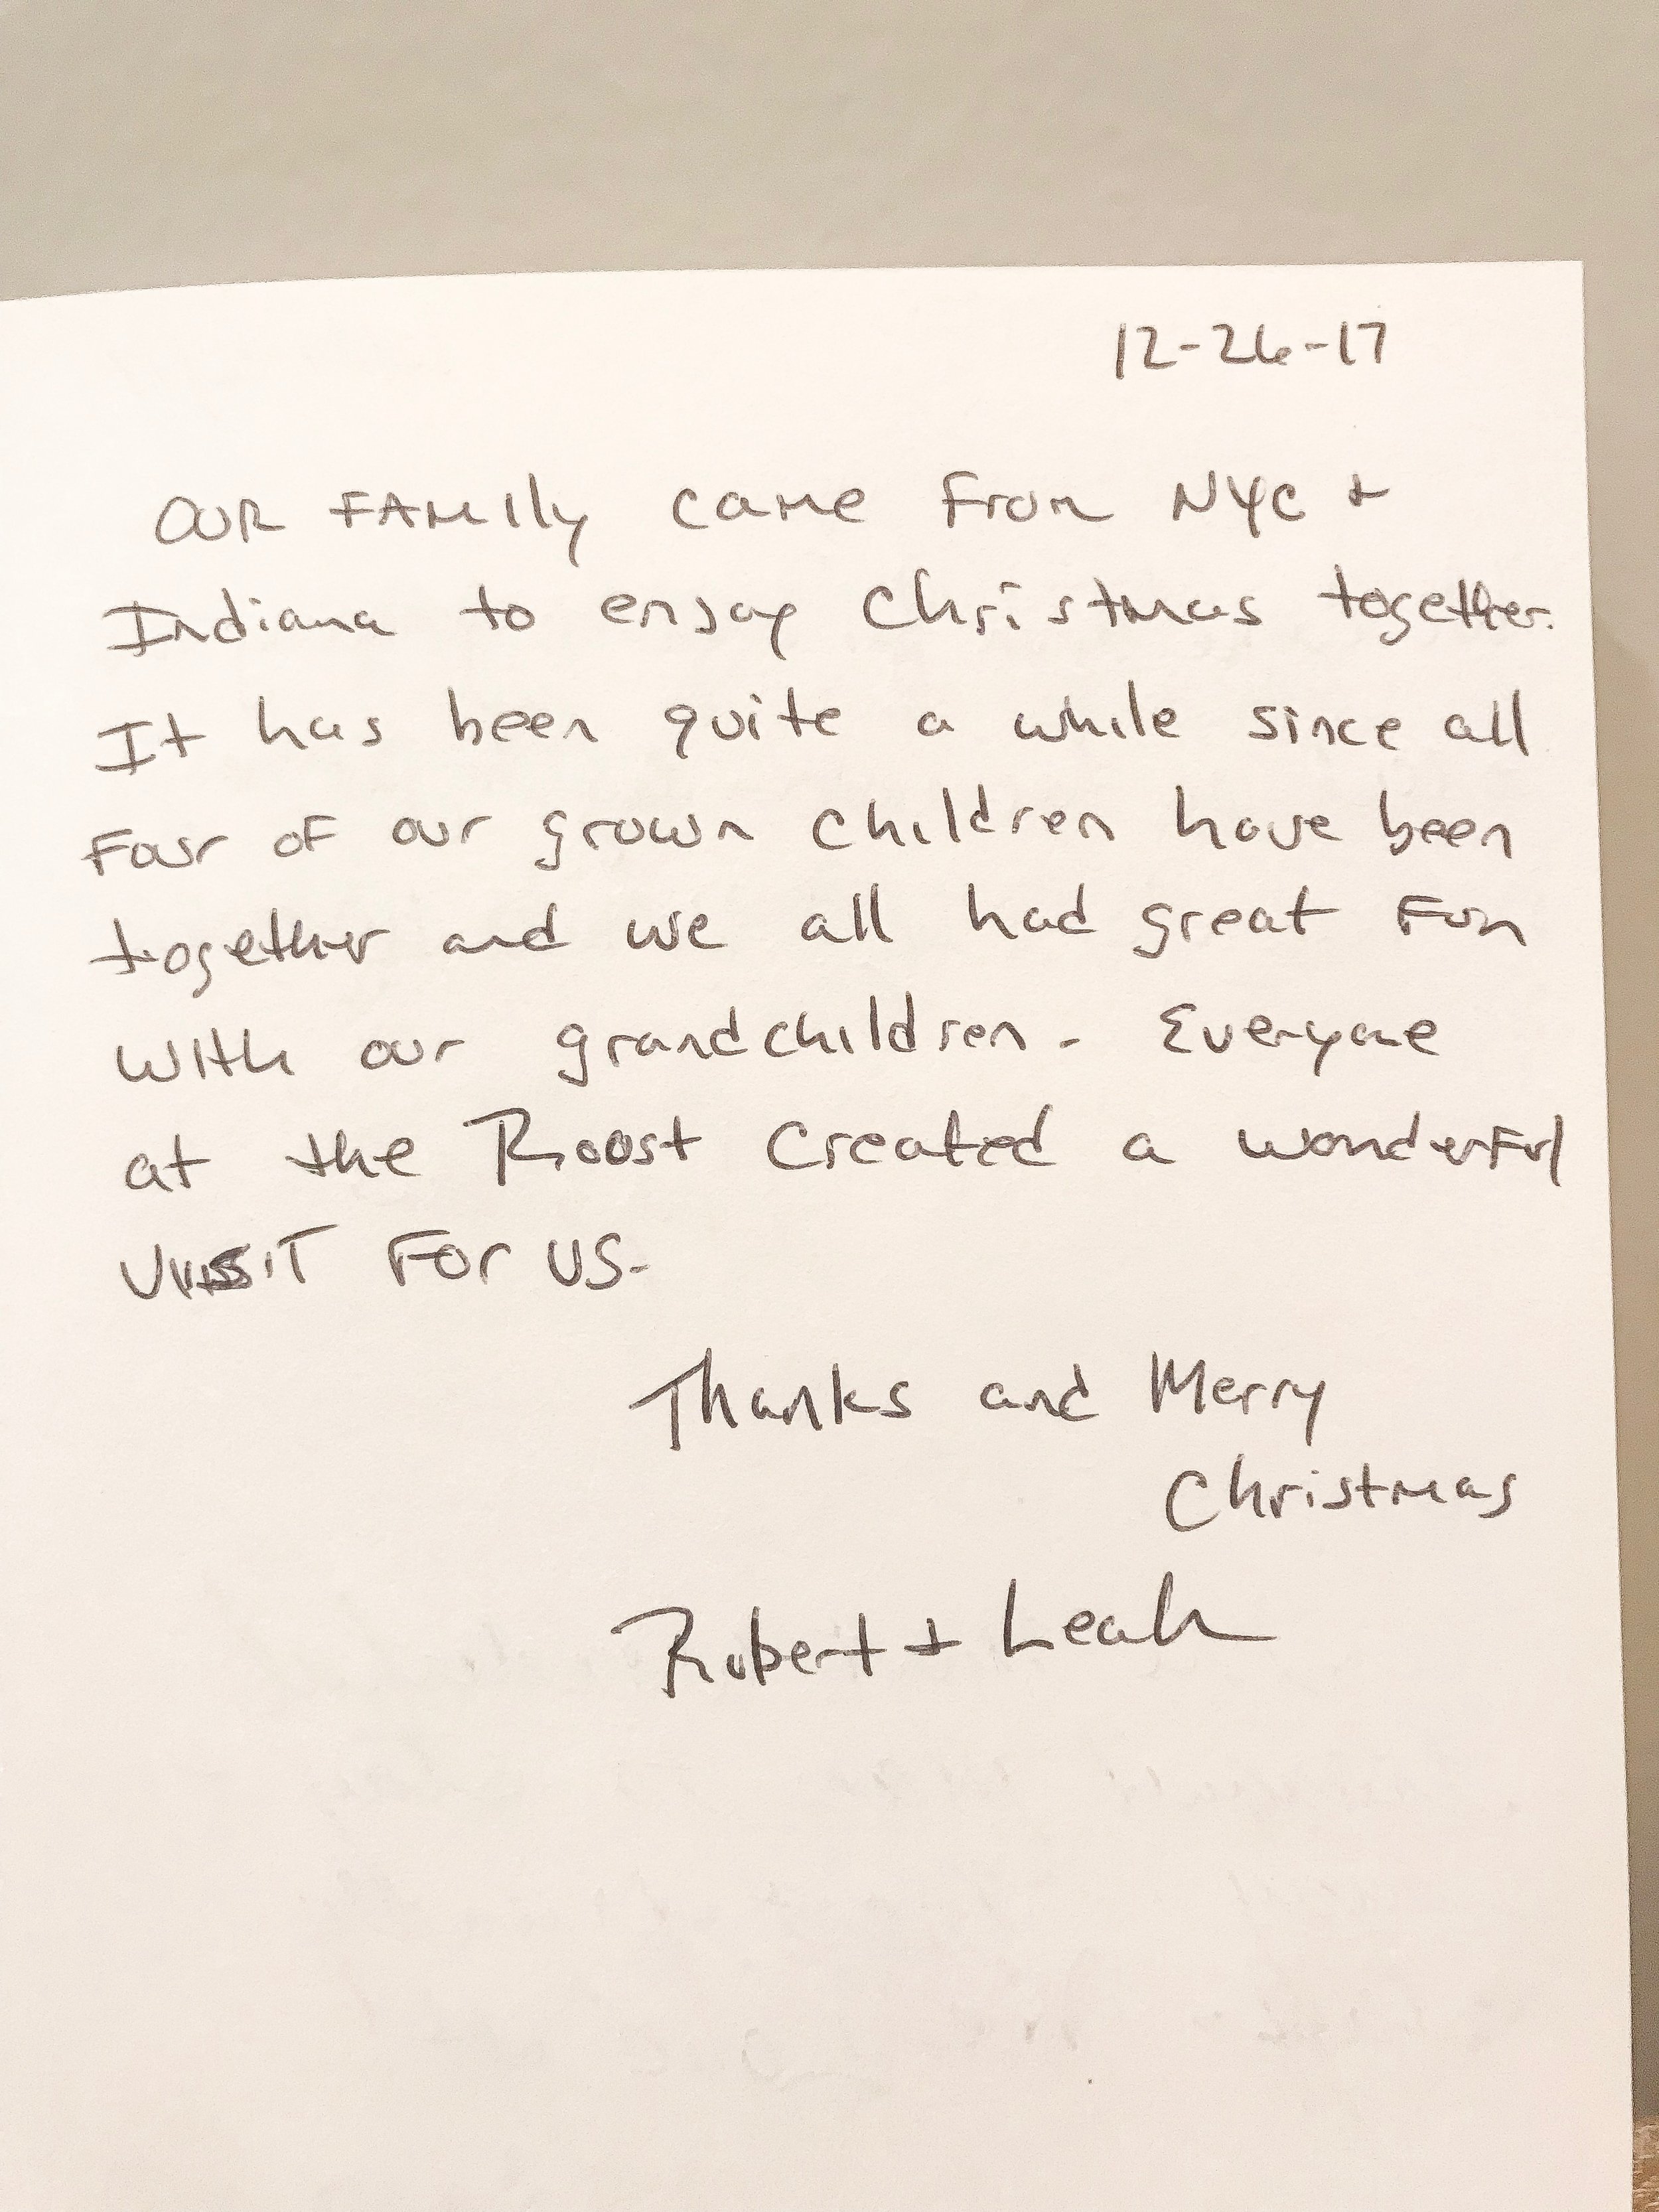 12-26-17
OUR FAMIly came From NYC +
Indiana to enjoy Christmas together.
It has been quite a while since all
Four oF our grown children have been
together and we all had great Fun
with our grandchildren. Everyone
at the Roost created a wonderFul
VISIT FOr US.
Thanks and Merry
Christmas
Robert + Leah